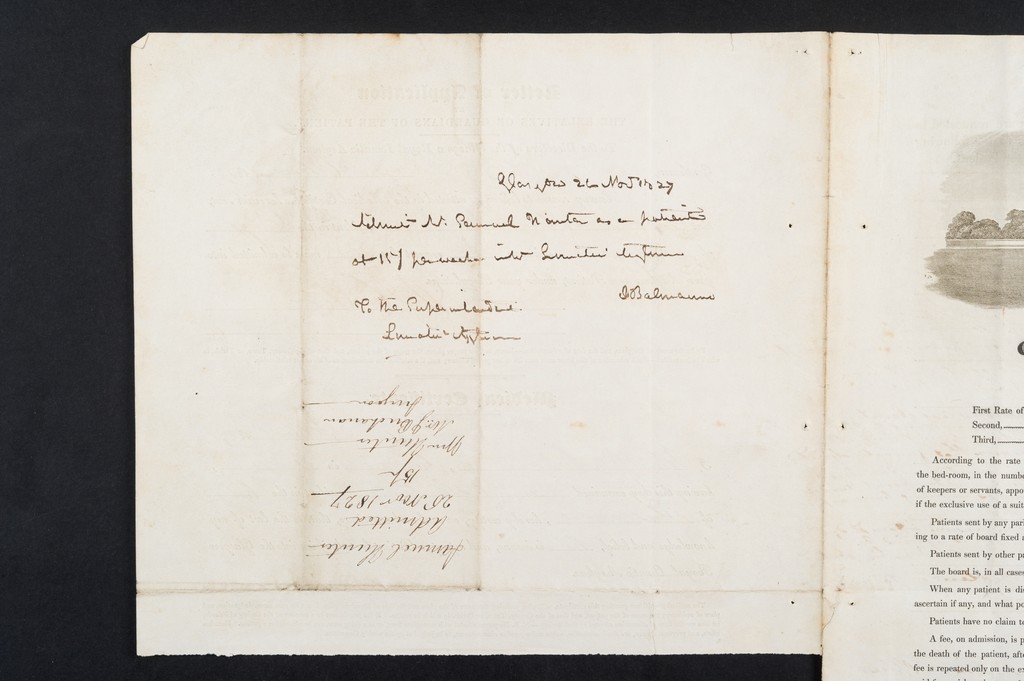 Glasgow 26 Novr 1827
Admit Mr Samuel Hunter as a patient
at 15/ per week into Lunatic Asylum
J Balmanno
To the Superintendent
Lunatic Asylum
Samuel Hunter
Admitted
26 Novr 1827
15/
Wm Hunter
Mr J Buchanan
Surgeon
First Rate of
Second,
Third,
According to the rate
the bed-room, in the numbe
of keepers or servants, appo
if the exclusive use of a suit
Patients sent by any pari
ing to a rate of board fixed a
Patients sent by other p
The board is, in all cases
When any patient is dis
ascertain if any, and what po
Patients have no claim t
A fee, on admission, is p
the death of the patient, aft
fee is repeated only on the e